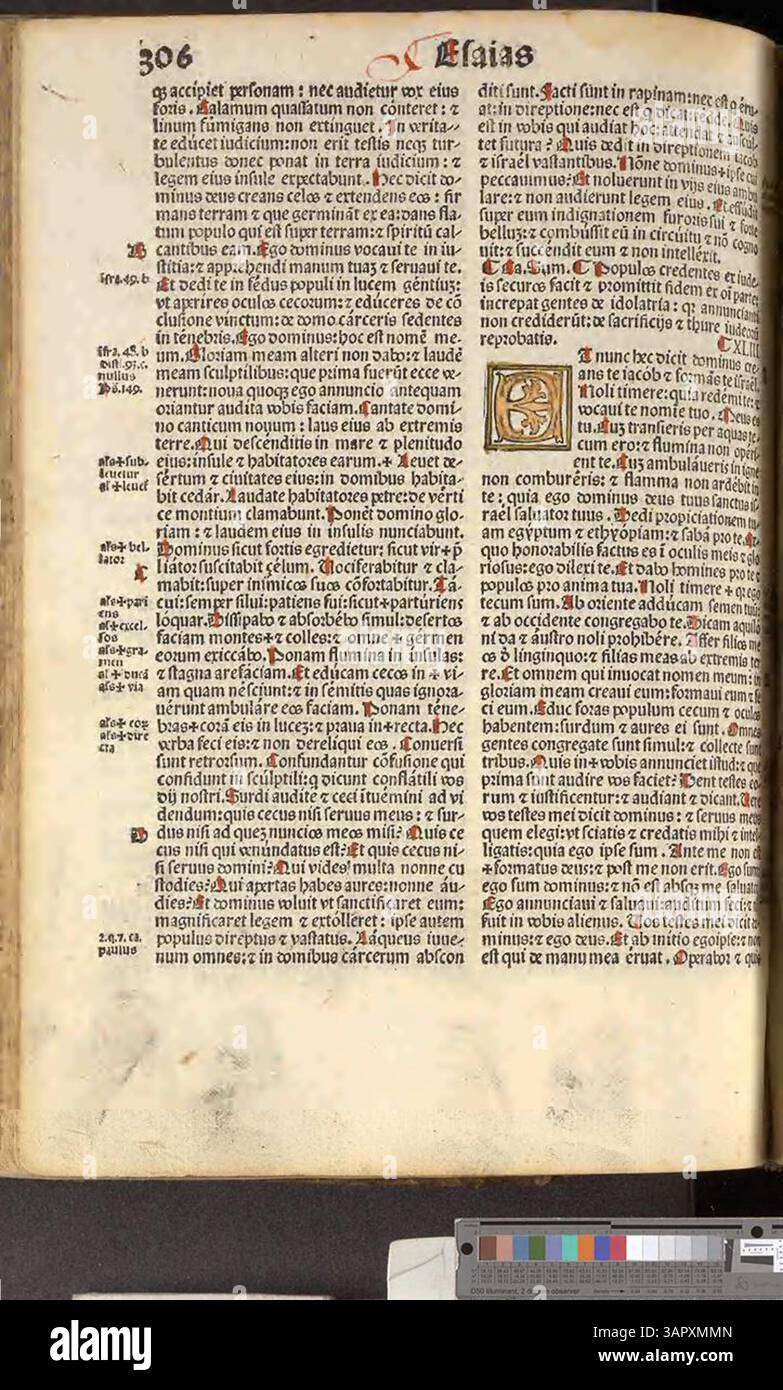 306
Esaias
qꝫ accipiet personam : nec audietur vox eius
foris . Calamum quassatum non cōteret : ⁊
linum fumigans non extinguet . In verita-
te educet iudicium: non erit testis neqꝫ tur-
bulentus donec ponat in terra iudicium : ⁊
legem eius insule expectabunt . Hec dicit do-
minus deus creans celos ⁊ extendens eos : fir
mans terram ⁊ que germināt ex ea: dans fla-
tum populo qui est super terram: ⁊ spiritū cal-
B
cantibus eam. Ego dominus vocaui te in iu-
stitia: ⁊ apprehendi manum tuaꝫ ⁊ seruaui te.
ifra. 49. b
Et dedi te in fedus populi in lucem gentiuꝫ:
vt aperires oculos cecorum: ⁊ educeres de cō
clusione vinctum: de domo carceris sedentes
in tenebris. Ego dominus: hoc est nomē me-
ifra. 48. b
um. Gloriam meam alteri non dabo: ⁊ laudē
nullus
meam sculptilibus: que prima fuerūt ecce ve-
Ps. 149.
nerunt: noua quoqꝫ ego annuncio antequam
oriantur audita vobis faciam. Cantate domi-
no canticum nouum : laus eius ab extremis
terre. Qui descenditis in mare ⁊ plenitudo
als+sub-
leuetur
al+leuet
eius: insule ⁊ habitatores earum.+ Leuet de-
sertum ⁊ ciuitates eius: in domibus habita-
bit cedar. Laudate habitatores petre: de verti
ce montium clamabunt. Ponēt domino glo-
riam : ⁊ laudem eius in insulis nunciabunt.
als+bel-
lator
Dominus sicut fortis egredietur: sicut vir+p̄
C
liator suscitabit zelum. Vociferabitur ⁊ cla-
mabit: super inimicos suos cōfortabitur. Ta-
als+pari
ens
cui: semper silui: patiens fui: sicut+parturiens
als+excel-
sos
loquar. Dissipabo ⁊ absorbebo simul: desertos
faciam montes+⁊ colles: ⁊ omne + germen
als+gra-
men
eorum exiccabo. Ponam flumina in insulas:
al+ducā
⁊ stagna arefaciam. Et educam cecos in + vi-
als+via
am quam nesciunt: ⁊ in semitis quas ignora-
uerunt ambulare eos faciam. Ponam tene-
als+cox
als+dire
cta
bras+corā eis in luceꝫ: ⁊ praua in+recta. Hec
verba feci eis: ⁊ non dereliqui eos . Conuersi
sunt retrorsum. Confundantur cōfusione qui
confidunt in sculptili: q dicunt conflatili vos
dij nostri. Surdi audite ⁊ ceci ituemini ad vi
dendum: quis cecus nisi seruus meus : ⁊ sur-
D
dus nisi ad queꝫ nuncios meos misi? Quis ce
cus nisi qui venundatus est? Et quis cecus ni-
si seruus domini? Qui vides multa nonne cu
stodies? Qui apertas habes aures: nonne au-
dies? Et dominus voluit vt sanctificaret eum:
magnificaret legem ⁊ extolleret : ipse autem
2. q. 7. ca.
paulus
populus direptus ⁊ vastatus. Laqueus iuue-
num omnes: ⁊ in domibus carcerum abscon
diti sunt. Facti sunt in rapinam: nec est q eru-
at: in direptione: nec est q dicat redde. Quis
est in vobis qui audiat hoc: attendat ⁊ auscul
tet futura? Quis dedit in direptionem iacob
⁊ israel vastantibus. Nōne dominus+ipse cui
peccauimus? Et noluerunt in vijs eius ambu
lare: ⁊ non audierunt legem eius . Et effudit
super eum indignationem furoris sui ⁊ forte
belluꝫ: ⁊ combussit eū in circuitu ⁊ nō cogno
uit: ⁊ succendit eum ⁊ non intellexit.
Ca. Sum. Populos credentes ex iude-
is securos facit ⁊ promittit fidem ex oī parte:
increpat gentes de idolatria: qꝫ annuncianti
non crediderūt: de sacrificijs ⁊ thure iudeorū
reprobatis.
XLIII
ET nunc hec dicit dominus cre-
ans te iacob ⁊ formās te israel.
Noli timere: quia redemi te: ⁊
vocaui te nomine tuo . Meus es
tu. Cuꝫ transieris per aquas te-
cum ero: ⁊ flumina non operi-
ent te. Cuꝫ ambulaueris in igne
non combureris: ⁊ flamma non ardebit in
te : quia ego dominus deus tuus sanctus is-
rael saluator tuus . Dedi propiciationem tu-
am egyptum ⁊ ethyopiam: ⁊ saba pro te. Ex
quo honorabilis factus es ī oculis meis ⁊ glo
riosus: ego dilexi te. Et dabo homines pro te ⁊
populos pro anima tua. Noli timere + qꝫ ego
tecum sum. Ab oriente adducam semen tuū:
⁊ ab occidente congregabo te. Dicam aquilo
ni da ⁊ austro noli prohibere. Affer filios me
os ð linginquo: ⁊ filias meas ab extremis ter
re. Et omnem qui inuocat nomen meum: in
gloriam meam creaui eum: formaui eum ⁊ fe
ci eum. Educ foras populum cecum ⁊ oculos
habentem: surdum ⁊ aures ei sunt. Omnes
gentes congregate sunt simul: ⁊ collecte sunt
tribus. Quis in+vobis annunciet istud: ⁊ que
prima sunt audire vos faciet? Dent testes eo-
rum ⁊ iustificentur: ⁊ audiant ⁊ dicant. Vere
vos testes mei dicit dominus : ⁊ seruus meus
quem elegi: vt sciatis ⁊ credatis mihi ⁊ intel-
ligatis: quia ego ipse sum . Ante me non est
+formatus deus: ⁊ post me non erit. Ego sum
ego sum dominus: ⁊ nō est absqꝫ me saluator
Ego annunciaui ⁊ saluaui: auditum feci: ⁊ nō
fuit in vobis alienus. Vos testes mei dicit do-
minus: ⁊ ego deus. Et ab initio ego ipse: ⁊ non
est qui de manu mea eruat . Operabor ⁊ quis
D50 Illuminant, 2 degree observer
Density
alamy
Image ID: 3APXMMN
www.alamy.com